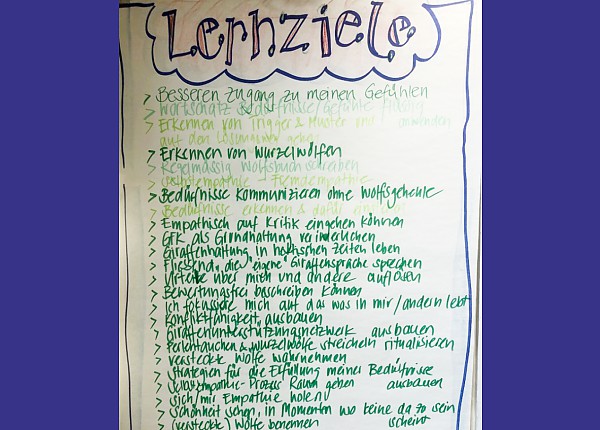 Lernziele
> Besseren Zugang zu meinen Gefühlen
> Wortschatz Bedürfnisse/Gefühle
> Erkennen von Trigger & Muster und anwenden
auf den Lösungsweg gehen
> Erkennen von Wurzelwölfen
> Regelmässig Wolfsbuch schreiben
> Selbstempathie - Fremdempathie
> Bedürfnisse kommunizieren ohne Wolfsgeheule
> Bedürfnisse erkennen & dafür
> Empathisch auf Kritik eingehen können
> GFK als Grundhaltung verinnerlichen
> Giraffenhaltung in hektischen Zeiten leben
> Fliessend, die "eigene" Giraffensprache sprechen
> Urteile über mich und andere auflösen
> Bewertungsfrei beschreiben können
> Ich fokussiere mich auf das was in mir/andern lebt
> Konfliktfähigkeit ausbauen
> Giraffenunterstützungsnetzwerk ausbauen
> Perlentauchen & Wurzelwölfe streicheln ritualisieren
> versteckte Wölfe wahrnehmen
> Strategien für die Erfüllung meiner Bedürfnisse
ausbauen
> Selbstempathie-Prozess Raum geben
> sich/mir Empathie holen
> Schönheit sehen, in Momenten wo keine da zo sein
scheint
> (versteckte) Wölfe benennen